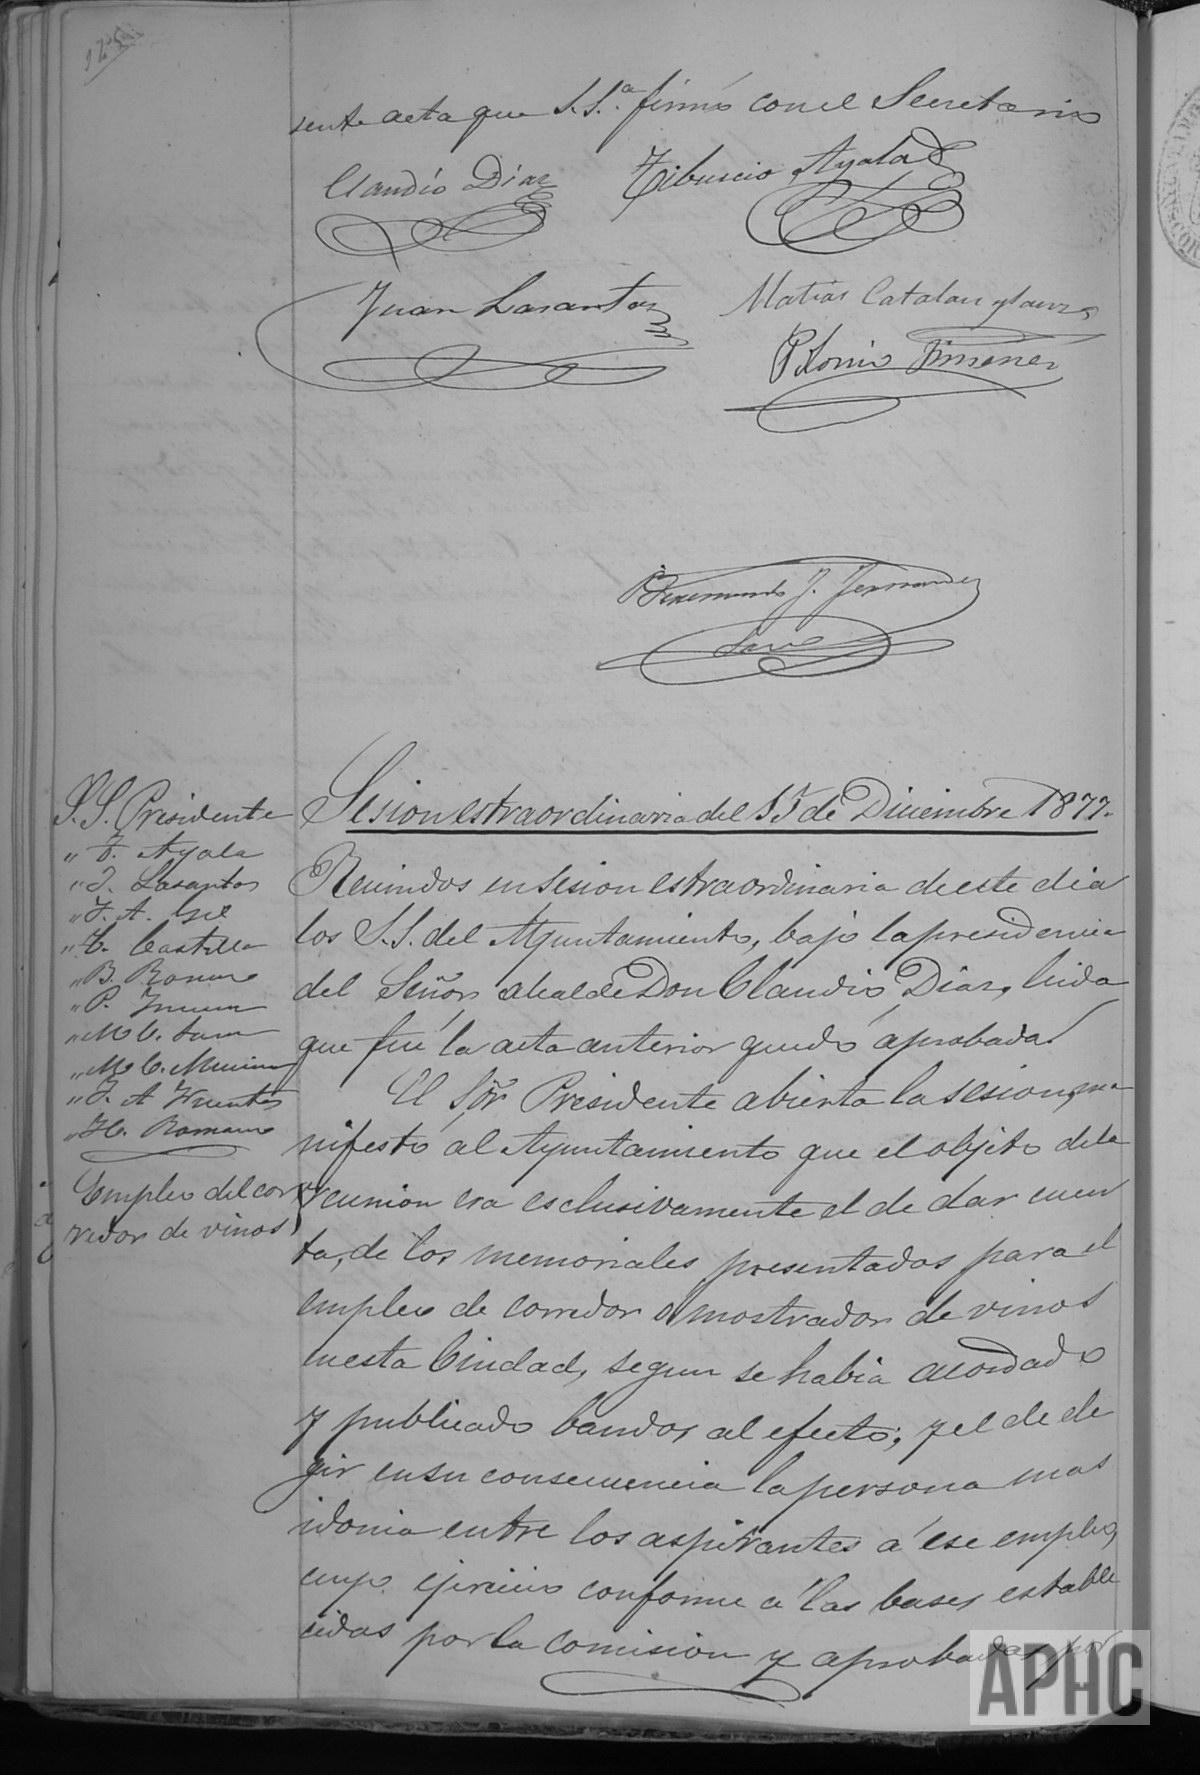 sente acta que S.S.ª firmó con el Secretario
Claudio Diaz
Tiburcio Ayala
Juan Lasantas
Matias Catalan y
Polonio Jimenez
J. Fernandez
S.S. Presidente
" T. Ayala
" J. Lasantas
" F. A. Gil
" C. Castilla
" B. Romero
" P.
" M. C.
" M. C.
" J. A Fuentes
" H. Romano
Empleo del cor
redor de vinos
Sesion estraordinaria del 15 de Diciembre 1877.
Reunidos en sesion estraordinaria de este dia
los S.S. del Ayuntamiento, bajo la presidencia
del Señor alcalde Don Claudio Diaz, leida
que fué la acta anterior quedó aprobada.
El Sõr Presidente abierta la sesion, ma
nifestó al Ayuntamiento que el objeto de la
reunion era esclusivamente el de dar cuen
ta, de los memoriales presentados para el
empleo de corredor o mostrador de vinos
en esta Ciudad, segun se habia acordado
y publicado bandos al efecto; y el de ele
gir en su consecuencia la persona mas
idonia entre los aspirantes á ese empleo,
cuyo ejercicio conforme á las bases estable
cidas por la comision y aprobadas por
APHC